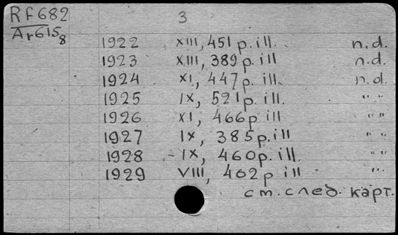 Rf682 3
Ar615 8
1922 XIII, 451 p. ill. n.d.
1923 XIII, 389 p. ill n.d.
1924 XI, 447 p. ill. n.d.
1925 IX, 521 p. ill. " "
1926 XI, 466 p ill " "
1927 IX, 385 p. ill " "
1928 - IX, 460 p. ill. " "
1929 VIII, 462 p ill "
см. след. карт.